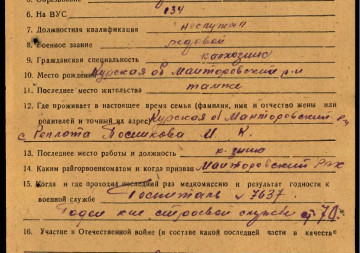 6. На ВУС 134
7. Должностная квалификация не служил
8. Военное звание рядовой
9. Гражданская специальность колхозник
10. Место рождения Курская об Мантуровский р-н
11. Последнее место жительства там же
12. Где проживает в настоящее время семья (фамилия, имя и отчество жены или
родителей и точный их адрес) Курская об Мантуровский р-н
с И. К.
13. Последнее место работы и должность
14. Каким райгорвоенкоматом и когда призван Мантуровский РВК
15. Когда и где проходил последний раз медкомиссию и результат годности к
военной службе Госпиталь 7637.
Годен к строевой службе
16. Участие в Отечественной войне (в составе какой последней части в качестве